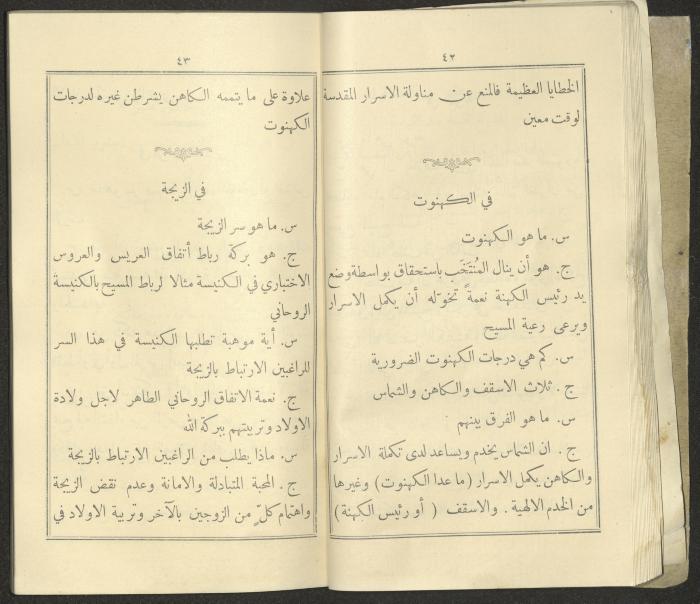 ٤٢
الخطايا العظيمة فالمنع عن مناولة الاسرار المقدسة
لوقت معين
في الكهنوت
س. ما هو الكهنوت
ج. هو أن ينال المُنتَخَب باستحقاق بواسطة وضع
يد رئيس الكهنة نعمةً تخوّله أن يكمل الاسرار
ويرعى رعية المسيح
س. كم هي درجات الكهنوت الضرورية
ج. ثلاث الاسقف والكاهن والشماس
س. ما هو الفرق بينهم
ج. ان الشماس يخدم ويساعد لدى تكملة الاسرار
والكاهن يكمل الاسرار (ما عدا الكهنوت) وغيرها
من الخدم الالهية. والاسقف (أو رئيس الكهنة)
٤٣
علاوة على ما يتممه الكاهن يشرطن غيره لدرجات
الكهنوت
في الزيجة
س. ما هو سر الزيجة
ج. هو بركة رباط أتفاق العريس والعروس
الاختياري في الكنيسة مثالا لرباط المسيح بالكنيسة
الروحاني
س. أية موهبة تطلبها الكنيسة في هذا السر
للراغبين الارتباط بالزيجة
ج. نعمة الاتفاق الروحاني الطاهر لاجل ولادة
الاولاد وتربيتهم ببركة الله
س. ماذا يطلب من الراغبين الارتباط بالزيجة
ج. المحبة المتبادلة والامانة وعدم نقض الزيجة
واهتمام كلٍّ من الزوجين بالآخر وتربية الاولاد في